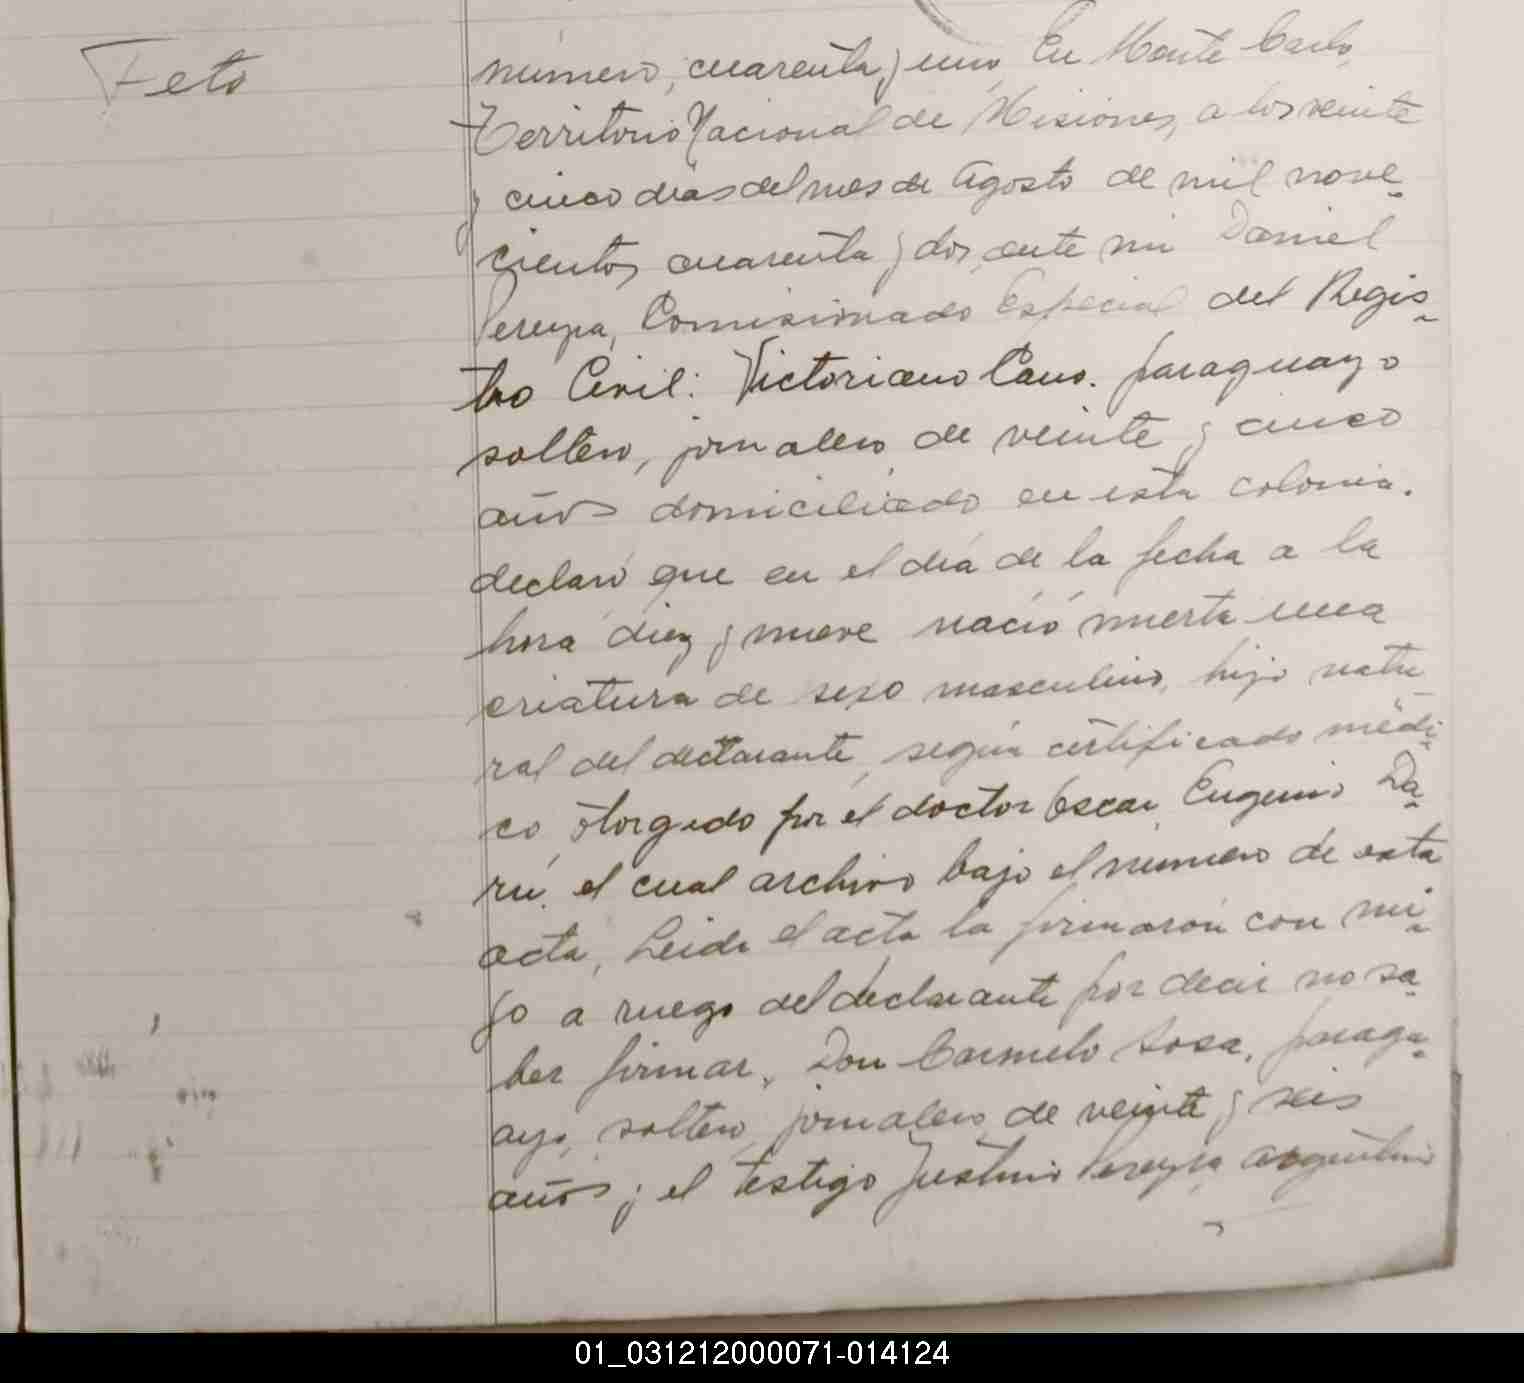 Feto
número, cuarenta y uno, En Monte Carlo,
Territorio Nacional de Misiones, a los veinte
y cinco dias del mes de Agosto de mil nove-
cientos cuarenta y dos, ante mi Daniel
Pereyra, Comisionado Especial del Regis-
tro Civil: Victoriano Cano. paraguayo
soltero, jornalero de veinte y cinco
años domiciliado en esta colonia.
declaró que en el día de la fecha a la
hora diez y nueve nació muerta una
criatura de sexo masculino, hijo natu
ral del declarante, según certificado médi-
co, otorgado por el doctor Oscar Eugenio Da-
rú, el cual archivo bajo el número de esta
acta, Leida el acta la firmarón con mi-
go a ruego del declarante por decir no sa-
ber firmar, Don Carmelo Sosa, paragu-
ayo, soltero, jornalero de veinte y seis
años y el testigo Justino Pereyra argentino
01_031212000071-014124